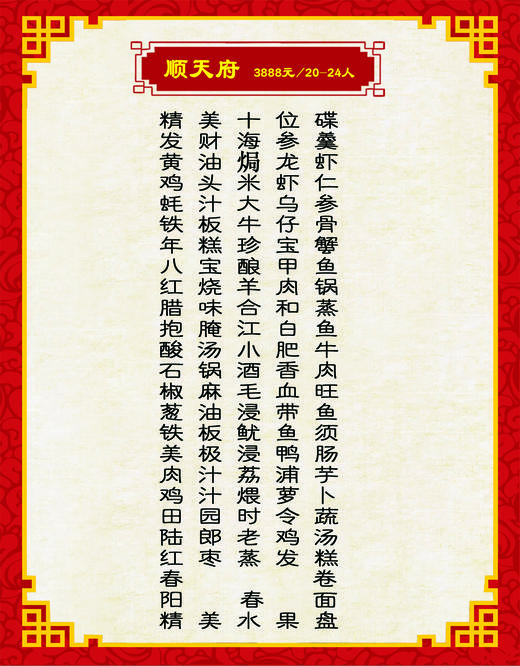 顺天府 3888元/20-24人
精美十位碟
发财海参羹
黄油焗龙虾
鸡头米虾仁
蚝汁大乌参
铁板牛仔骨
年糕珍宝蟹
八宝酿甲鱼
红烧羊肉锅
腊味合和蒸
抱腌江白鱼
酸汤小肥牛
石锅酒香肉
椒麻毛血旺
葱油浸带鱼
铁板鱿鱼须
美极浸鸭肠
肉汁荔浦芋
鸡汁煨萝卜
田园时令蔬
陆郎老鸡汤
红枣蒸发糕
春卷
阳春面
精美水果盘